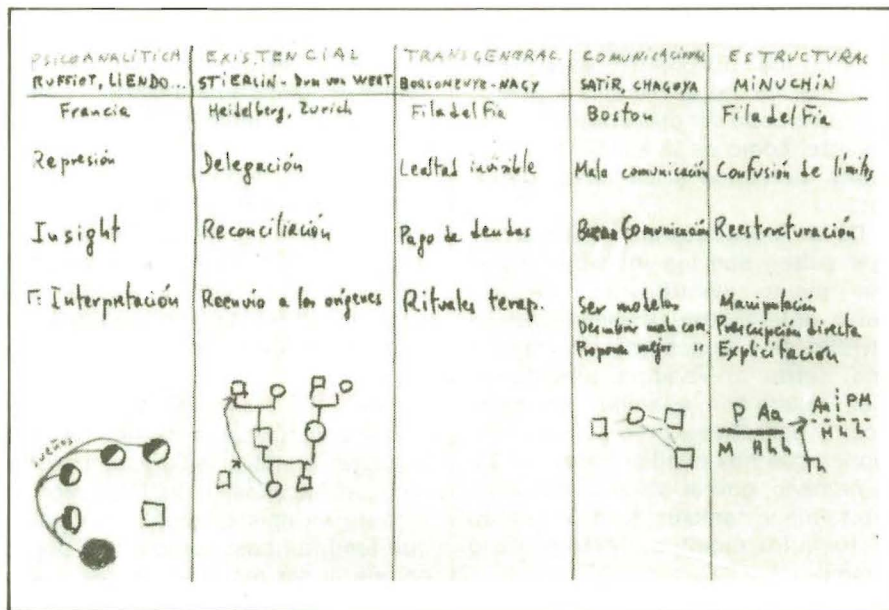 PSICOANALITICA EXISTENCIAL TRANSGENERAC COMUNICACIONAL ESTRUCTURAL
RUFFIOT, LIENDO... STIERLIN - BORSOMENYE-NAGY SATIR, CHAGOYA MINUCHIN
Francia Heidelberg, Zurich Filadelfia Boston Filadelfia
Represión Delegación Lealtad invisible Mala comunicación Confusión de límites
Insight Reconciliación Pago de deudas Buena Comunicación Reestructuración
T: Interpretación Reenvío a los orígenes Rituales terap. Ser modelo Manipulación
Descubrir mala com Prescripción directa
Propone mejor " Explicitación
sueños
P Aa Aa PM
M H h h H h h
Th